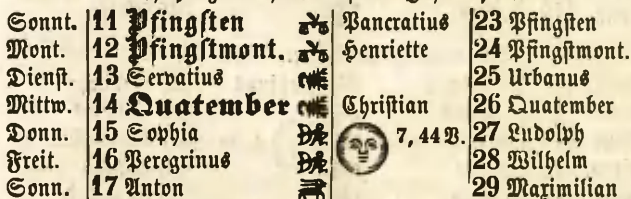 Sonnt. 11 Pfingſten Pancratius 23 Pfingſten
Mont. 12 Pfingſtmont. Henriette 24 Pfingſtmont.
Dienſt. 13 Servatius 25 Urbanus
Mittw. 14 Quatember Chriſtian 26 Quatember
Donn. 15 Sophia 7, 44 V. 27 Ludolph
Freit. 16 Peregrinus 28 Wilhelm
Sonn. 17 Anton 29 Maximilian